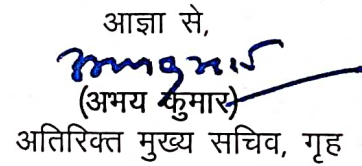 आज्ञा से,
(अभय कुमार)
अतिरिक्त मुख्य सचिव, गृह